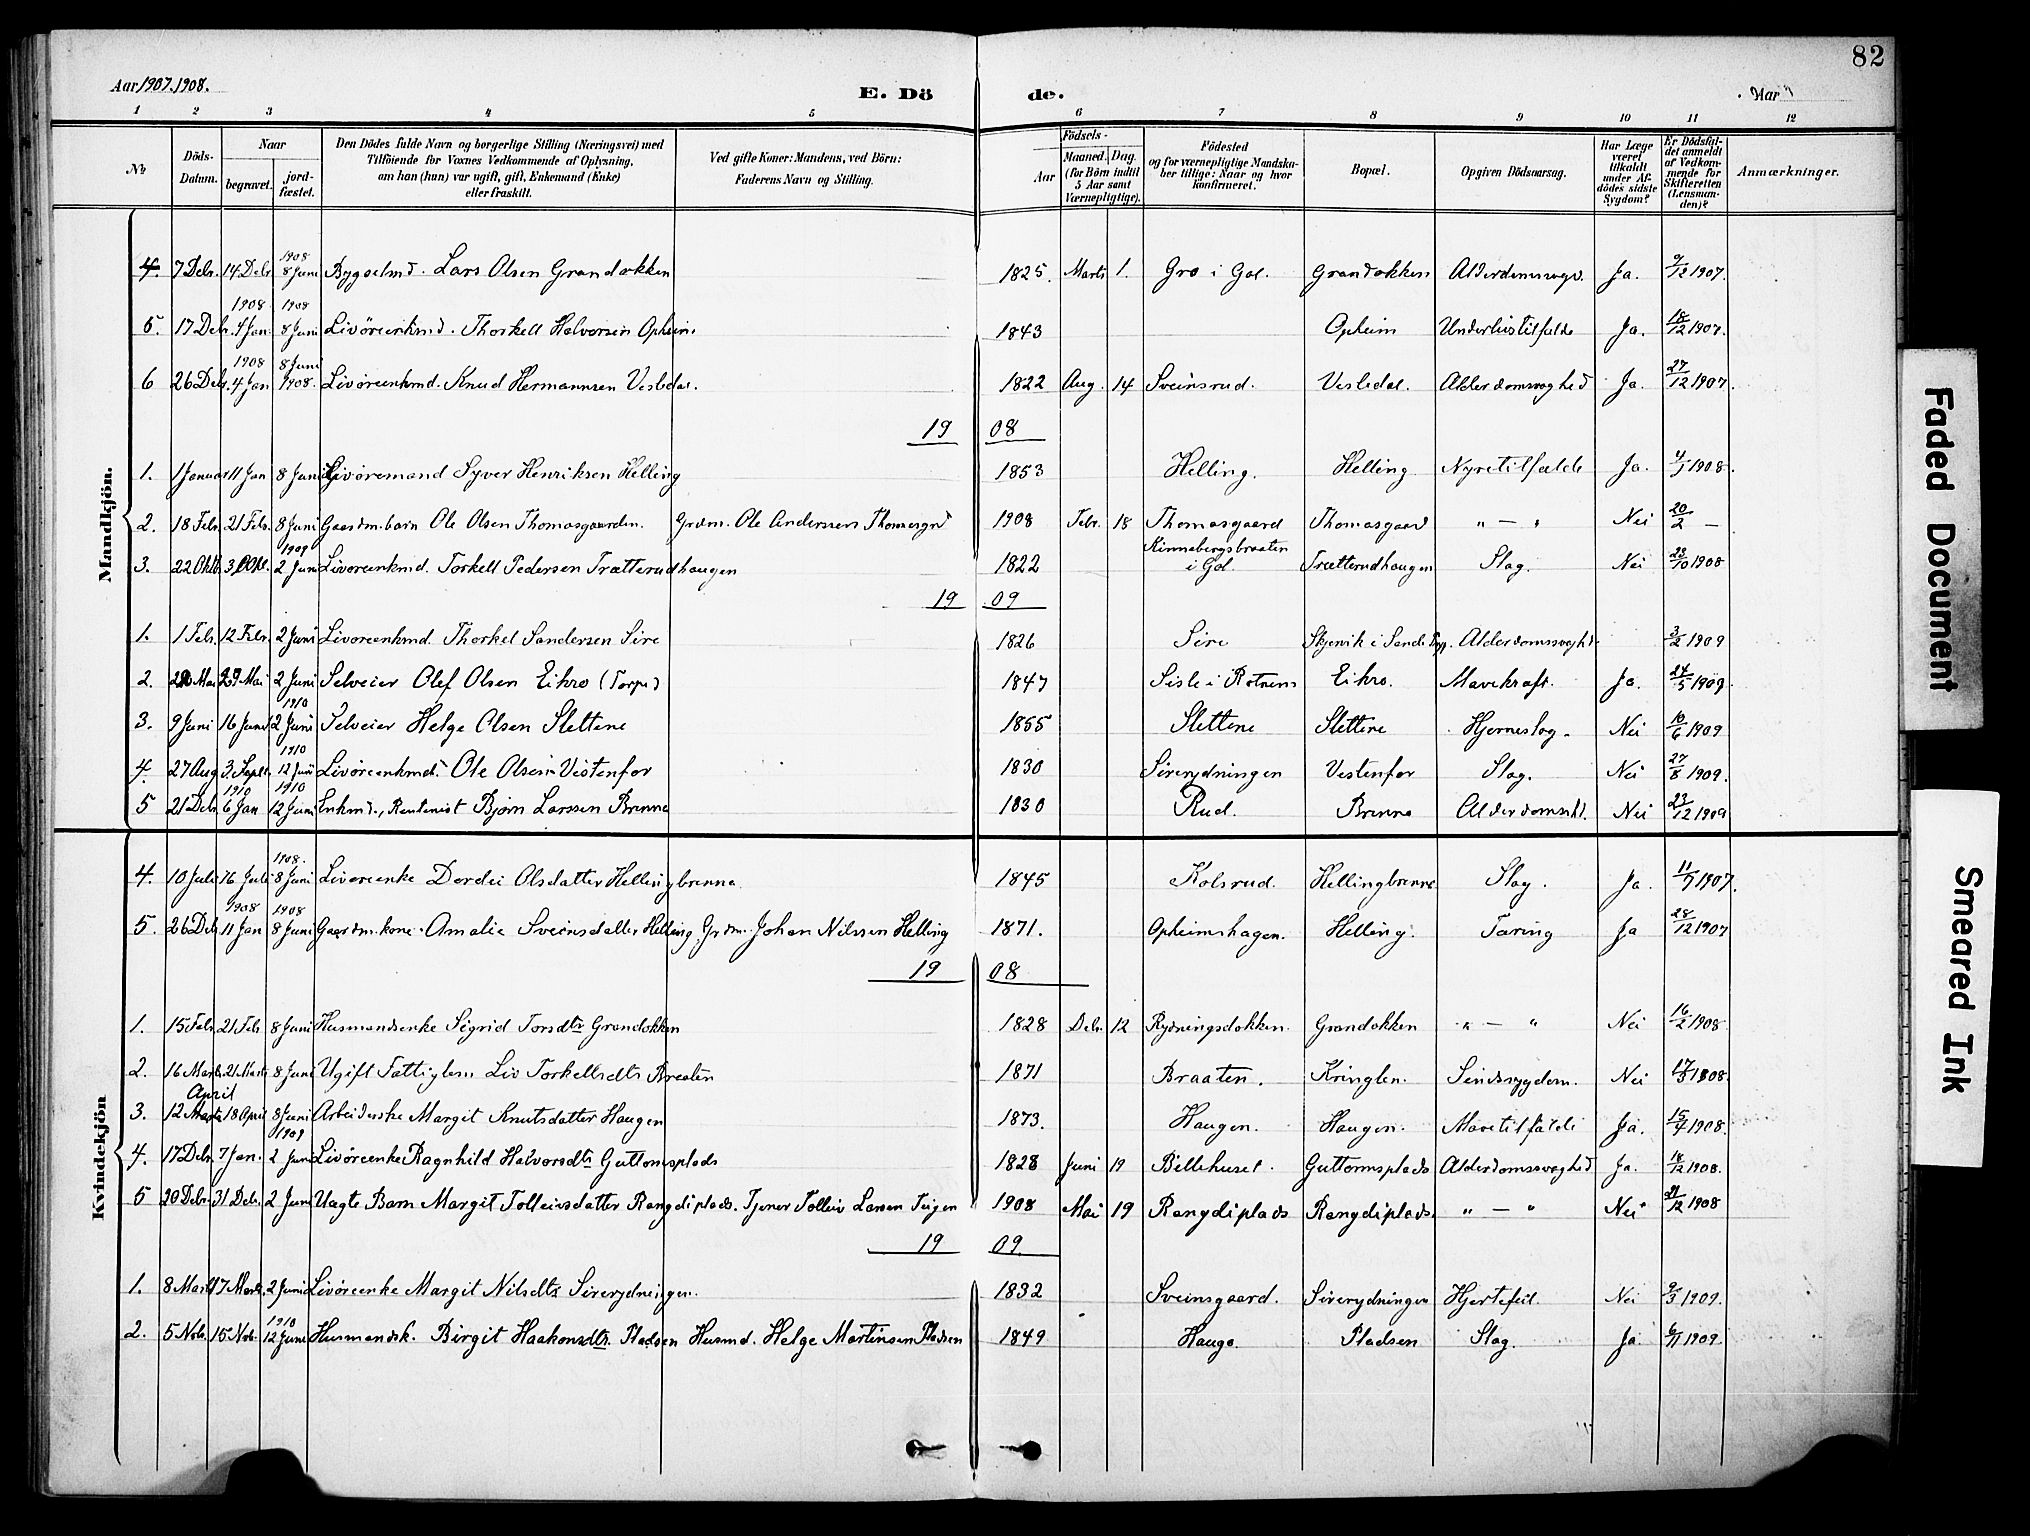 82
Aar 1907.1908. E. Dö de. Aar
1 2 3 4 5 6 7 8 9 10 11 12
№ Döds-Datum. Naar begravet. jordfæstet. Den Dödes fulde Navn og borgerlige Stilling (Næringsvei) med Tilföiende for Voxnes Vedkommende af Oplysning, om han (hun) var ugift, gift, Enkemand (Enke) eller fraskilt. Ved gifte Koner: Mandens, ved Börn: Faderens Navn og Stilling. Födsels- Aar Maaned. Dag. (for Börn indtil 5 Aar samt Værnepligtige). Födested og for værnepligtige Mandskaber tillige: Naar og hvor konfirmeret. Bopæl. Opgiven Dödsaarsag. Har Læge været tilkaldt under Afdödes sidste Sygdom? Er Dödsfaldet anmeldt af Vedkommende for Skifteretten (Lensmanden)? Anmærkninger.
Mandkjön.
4. 7 Debr. 14. Debr 1908 8 Juni Bygselmd. Lars Olsen Grandokken 1825. Marts 1. Gro i Gol. Grandokken Ja. 9/12 1907.
5. 17 Debr. 1908 4 Jan 1908 8 Juni Livöreenkmd. Thorkell Halvorsen Opheim. 1843 Opheim Underlivstilfælde Ja. 18/12 1907.
6 26 Debr. 1908 4 Jan 8 Juni 1908. Livöreenkmd. Knud Hermannsen Vesledal. 1822 Aug. 14 Sveinsrud. Vesledal. Alderdomsvaghed Ja. 27/12 1907.
19 08
1. 1 Januar 11 Jan 8 Juni Livöremand Syver Henriksen Helling 1853 Helling. Helling Nyretilfælde Ja. 4/1 1908.
2. 18 Febr. 21 Febr. 8 Juni Gaardm. barn Ole Olsen Thomasgaarden. Grdm. Ole Anderssen Thomasgrd 1908 Febr. 18 Thomasgaard Thomasgaard " — " Nei 20/2 —
3. 22 Oktb. 1909 2 Juni Livöreenkmd. Torkell Pedersen Trætterudhaugen 1822 Kinnebergsbraaten i Gol. Trætterudhaugen Slag. Nei 23/10 1908
19 09
1. 1 Febr. 12 Febr. 2 Juni Livöreenkmd. Thorkel Sandersen Sire 1826 Sire 3/2 1909
2. 29 Mai 2 Juni Selveier Olef Olsen Eikro (Torpe) 1847 Eikro. Mavekræft. Ja. 24/5 1909.
3. 9 Juni 16 Juni 1910 12 Juni Selveier Helge Olsen Slettene 1855 Slettene Slettene Hjerneslag. Nei 10/6 1909
4. 27 Aug 3. Septb. 1910 12 Juni Livöreenkmd. Ole Olsen Vestenfor 1830 Sirerydningen Vestenfor Slag. Nei 27/8 1909.
5 21 Debr 1910 6 Jan 1910 12 Juni Enkmd., Rentenist Bjørn Larssen Brenna 1830 Rud. Brenna Nei 23/12 1909
Kvindekjön
4. 10 Juli 16 Juli 1908. 8 Juni Livöreenke Dordei Olsdatter Hellingbrenna 1845 Kolsrud. Hellingbrenna Slag. Ja. 11/7 1907.
5. 26 Deb 1908 11 Jan 1908 8 Juni Gaardm. kone. Amalie Sveinsdatter Helling. Grdm. Johan Nilssen Helling 1871. Opheimshagen. Helling. Tæring Ja 28/12 1907
19 08
1. 15 Febr. 21 Febr. 8 Juni Husmandsenke Sigrid Torsdtr Grandokken 1828 Debr. 12 Rydningsdokken. Grandokken " — " Nei 16/2 1908.
2. 16 Marts. 21 Marts 8 Juni Ugift Fattiglem Liv Torkellsdtr Braaten 1871 Braaten. Kringlen. Sindssygdom. Nei 17/3 1908.
3. April 12 Marts 18 April 8 Juni Arbeiderske Margit Knutsdatter Haugen 1873. Haugen. Haugen. Mavetilfælde Ja. 15/4 1908.
4. 17 Debr. 7 Jan. 1909 2 Juni Livöreenke Ragnhild Halvorsdtr Guttormsplads 1828 Juni 19 Bellehuset. Guttormsplads Alderdomssvaghed Ja. 18/12 1908.
5 20 Debr. 31 Debr. 2 Juni Uægte Barn Margit Tolleivsdatter Rangdiplads. Tjener Tolleiv Larsen Teigen 1908 Mai 19 Rangdiplads Rangdiplads. " — " Nei 21/12 1908
19 09.
1. 8 Marts 17 Marts. 2 Juni Livöreenke Margit Nilsdtr Sirerydningen. 1832 Sveinsgaard. Sirerydningen Hjertefeil. Nei 9/3 1909.
2. 5 Nob. 15 Nob. 1910 12 Juni Husmandsk. Birgit Haakonsdtr. Pladsen Husmd. Helge Martinsen Pladsen 1849 Haugo. Pladsen Slag. Ja. 6/11 1909.
Faded Document
Smeared Ink